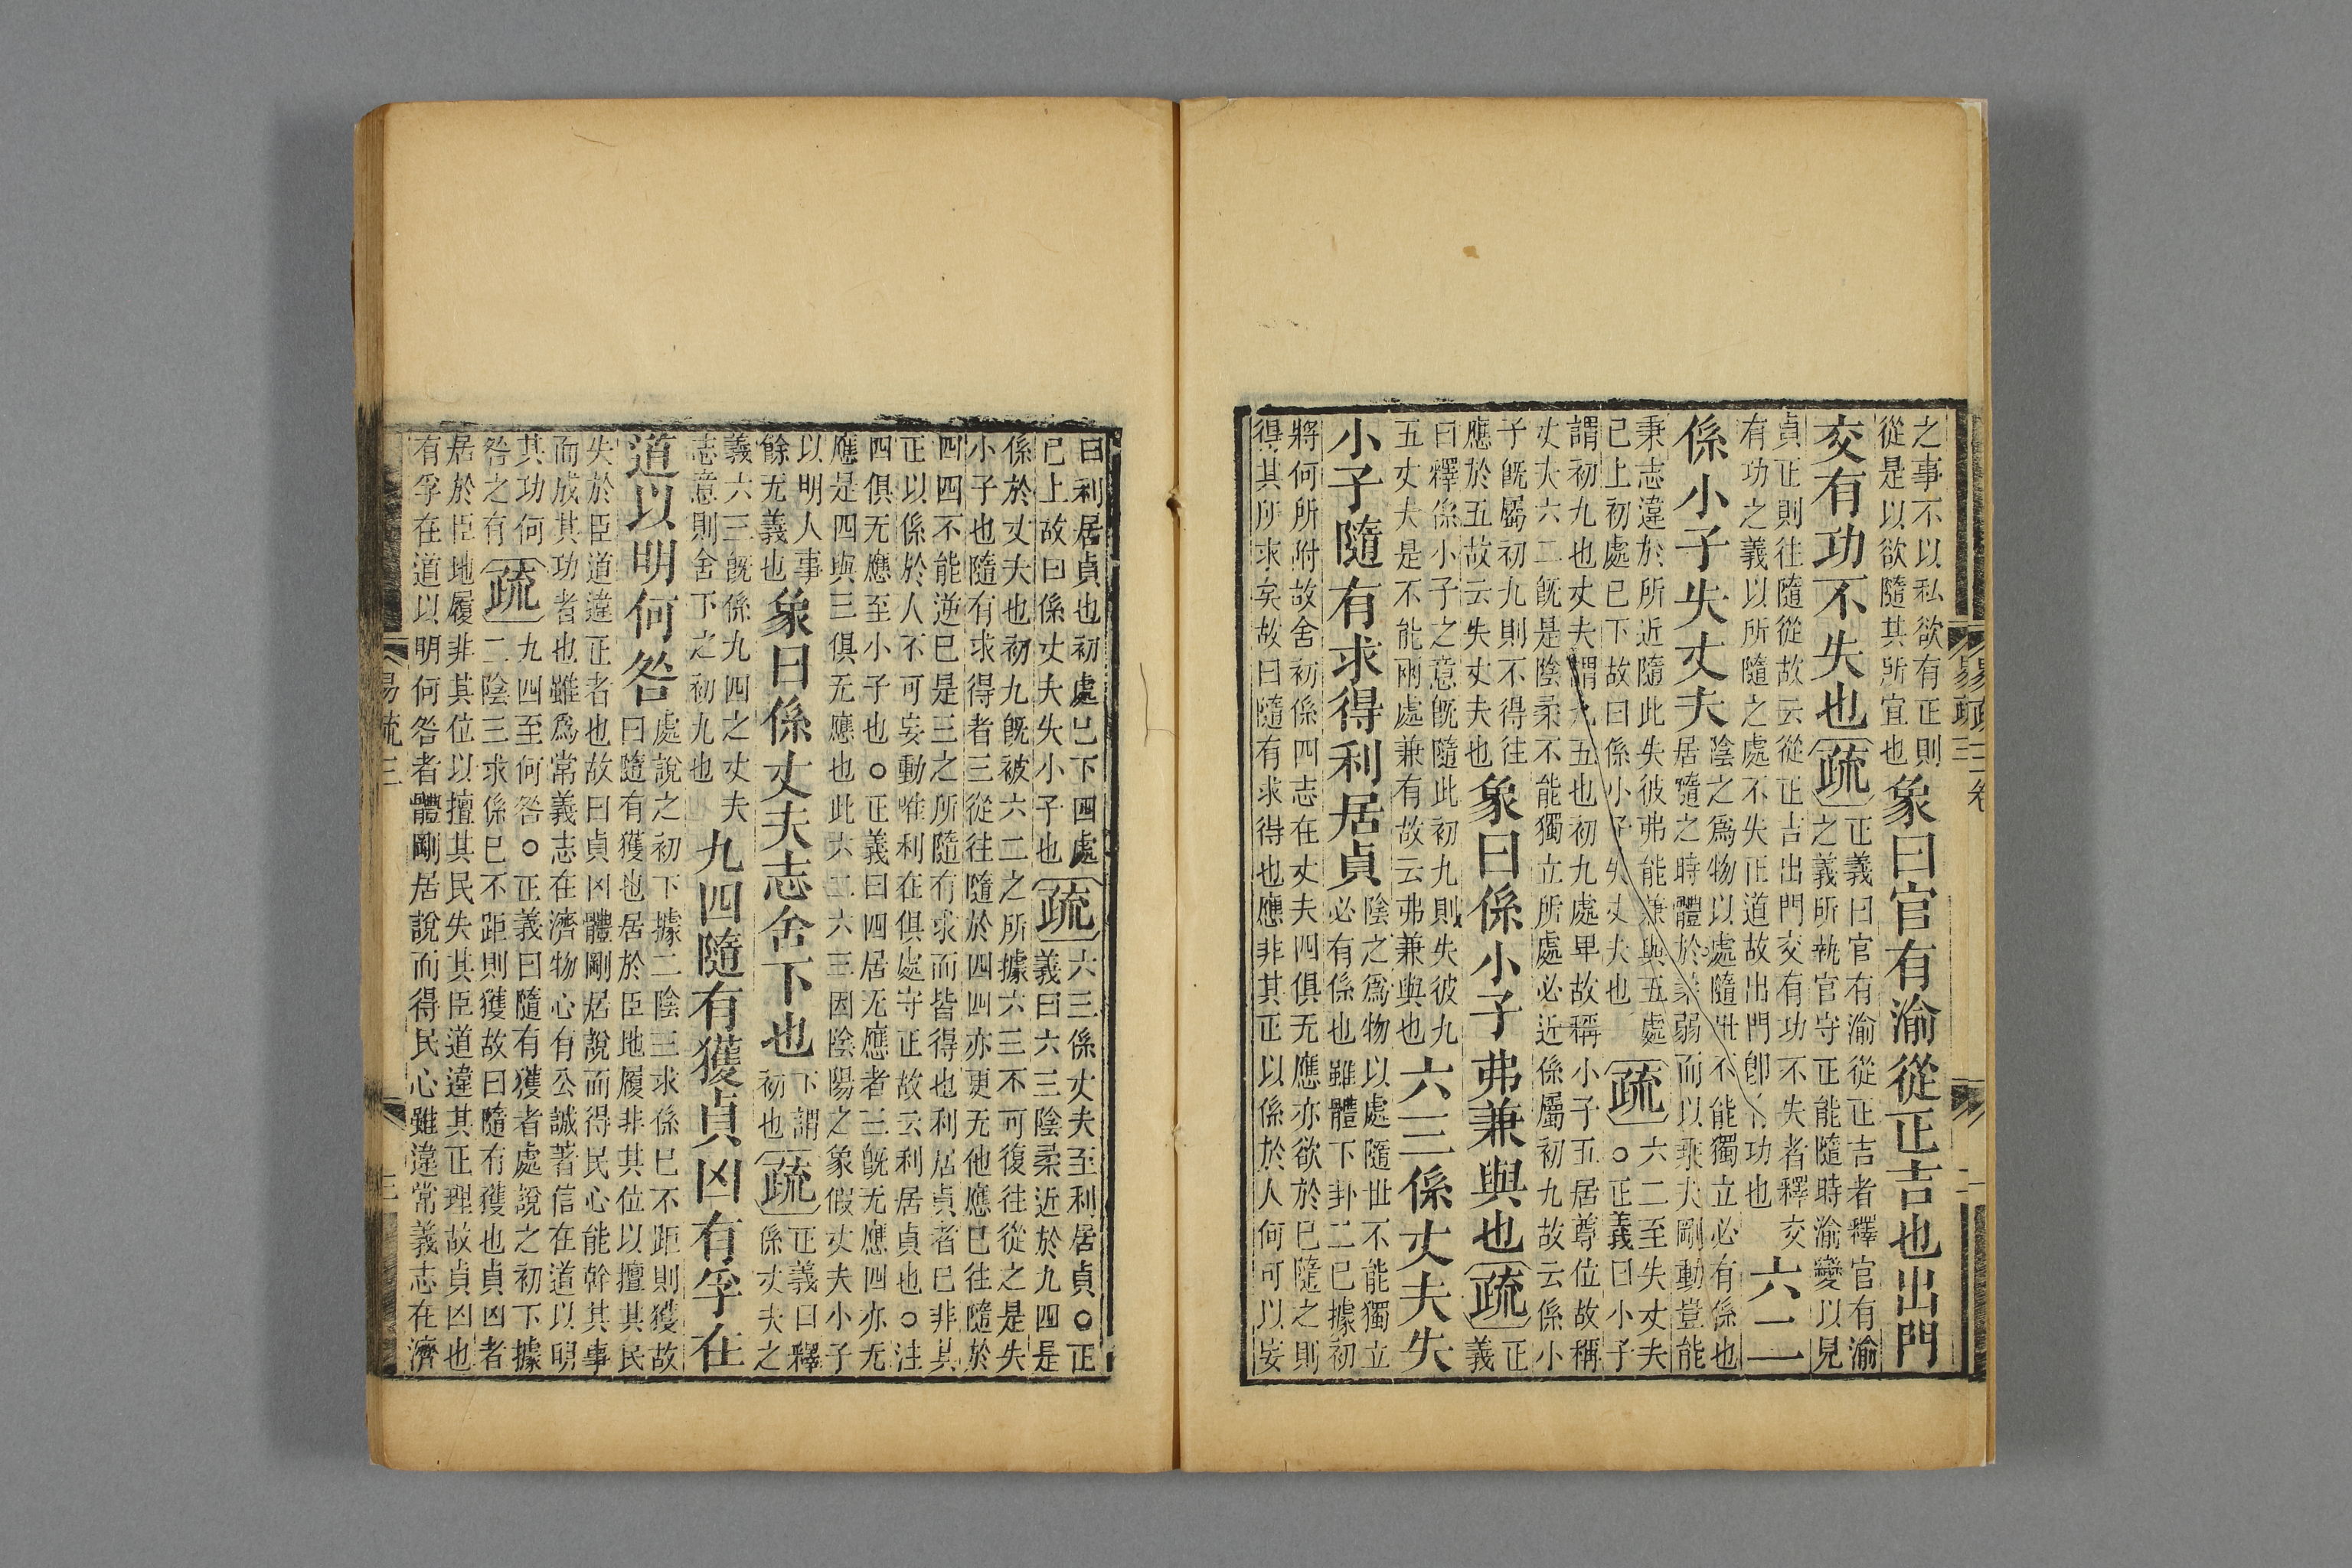 之事不以私欲有正則
從是以欲隨其所宜也
象曰官有渝從正吉也出門
交有功不失也疏
正義曰官有渝從正吉者釋官有渝
之義所執官守正能隨時渝變以見
貞正則往隨從故云從正吉出門交有功不失者釋交
有功之義以所隨之處不失正道故出門卽有功也
六二
係小子失丈夫
陰之爲物以處隨世不能獨立必有係也
居隨之時體於柔弱而以乘夫剛動豈能
秉志違於所近隨此失彼弗能兼與五處
已上初處已下故曰係小子失丈夫也
疏
六二至失丈夫
○正義曰小子
謂初九也丈夫謂九五也初九處卑故稱小子五居尊位故稱
丈夫六二旣是陰柔不能獨立所處必近係屬初九故云係小
子旣屬初九則不得往
應於五故云失丈夫也
象曰係小子弗兼與也疏
正
義
曰釋係小子之意旣隨此初九則失彼九
五丈夫是不能兩處兼有故云弗兼與也
六三係丈夫失
小子隨有求得利居貞
陰之爲物以處隨世不能獨立
必有係也雖體下卦二已據初
將何所附故舍初係四志在丈夫四俱无應亦欲於已隨之則
得其所求矣故曰隨有求得也應非其正以係於人何可以妄
易疏三卷
二
曰利居貞也初處已下四處
已上故曰係丈夫失小子也
疏
六三係丈夫至利居貞○正
義曰六三陰柔近於九四是
係於丈夫也初九旣被六二之所據六三不可復往從之是失
小子也隨有求得者三從往隨於四四亦更无他應已往隨於
四四不能逆已是三之所隨有求而皆得也利居貞者已非其
正以係於人不可妄動唯利在俱處守正故云利居貞也○注
四俱无應至小子也○正義曰四居无應者三旣无應四亦无
應是四與三俱无應也此六二六三因陰陽之象假丈夫小子
以明人事
餘无義也
象曰係丈夫志舍下也
下謂
初也
疏
正義曰釋
係丈夫之
義六三旣係九四之丈夫
志意則舍下之初九也
九四隨有獲貞凶有孚在
道以明何咎
處說之初下據二陰三求係已不距則獲故
曰隨有獲也居於臣地履非其位以擅其民
失於臣道違正者也故曰貞凶體剛居說而得民心能幹其事
而成其功者也雖爲常義志在濟物心有公誠著信在道以明
其功何
咎之有
疏
九四至何咎○正義曰隨有獲者處說之初下據
二陰三求係已不距則獲故曰隨有獲也貞凶者
居於臣地履非其位以擅其民失其臣道違其正理故貞凶也
有孚在道以明何咎者體剛居說而得民心雖違常義志在濟
易疏三
三